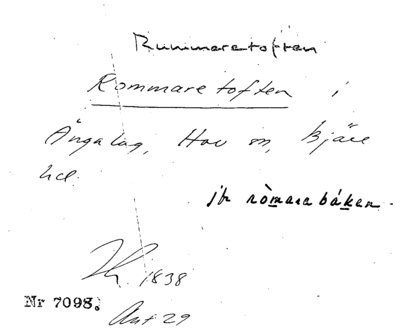 Rummaretoften
Rommaretoften i
Ängalag, Hov sn, Bjäre
hd.
jfr ròmarabákan.
1838
Nr 7098.
Ant 29